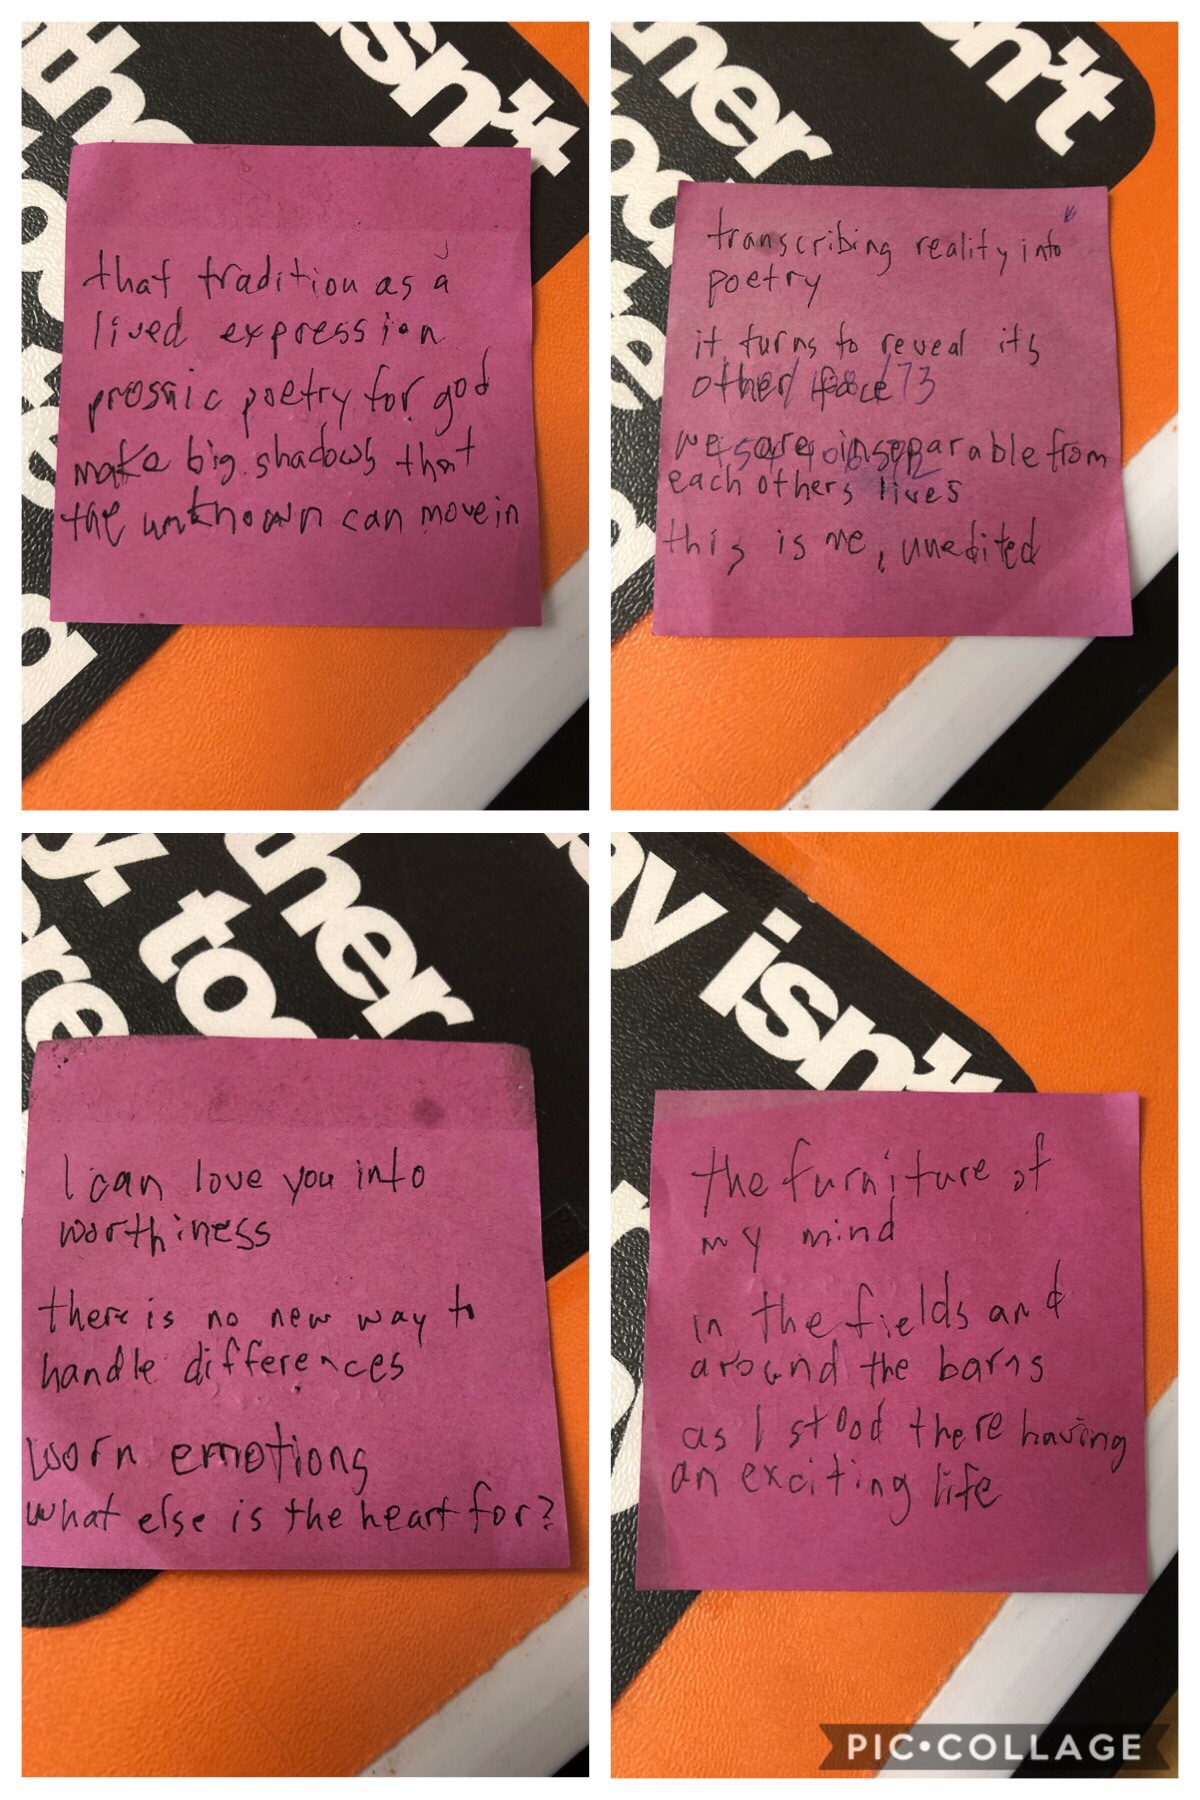 isn't
that tradition as a
lived expression
prosaic poetry for god
make big shadows that
the unknown can move in
n't
her
transcribing reality into
poetry
it turns to reveal its
other face
we are inseparable from
each others lives
this is me, unedited
her
y. to
ere
I can love you into
worthiness
there is no new way to
handle differences
worn emotions
what else is the heart for?
ay isn't
the furniture of
my mind
in the fields and
around the barns
as I stood there having
an exciting life
PIC•COLLAGE